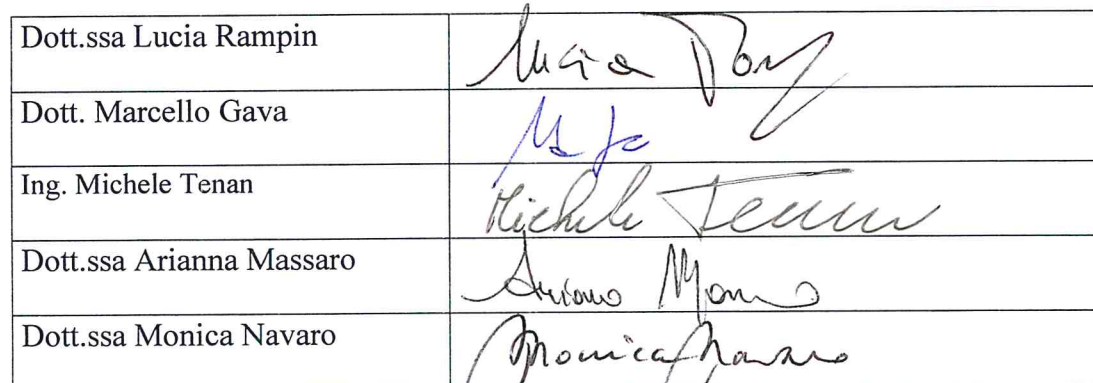 Dott.ssa Lucia Rampin Lucia
Dott. Marcello Gava
Ing. Michele Tenan Michele Tenan
Dott.ssa Arianna Massaro
Dott.ssa Monica Navaro Monica Navaro